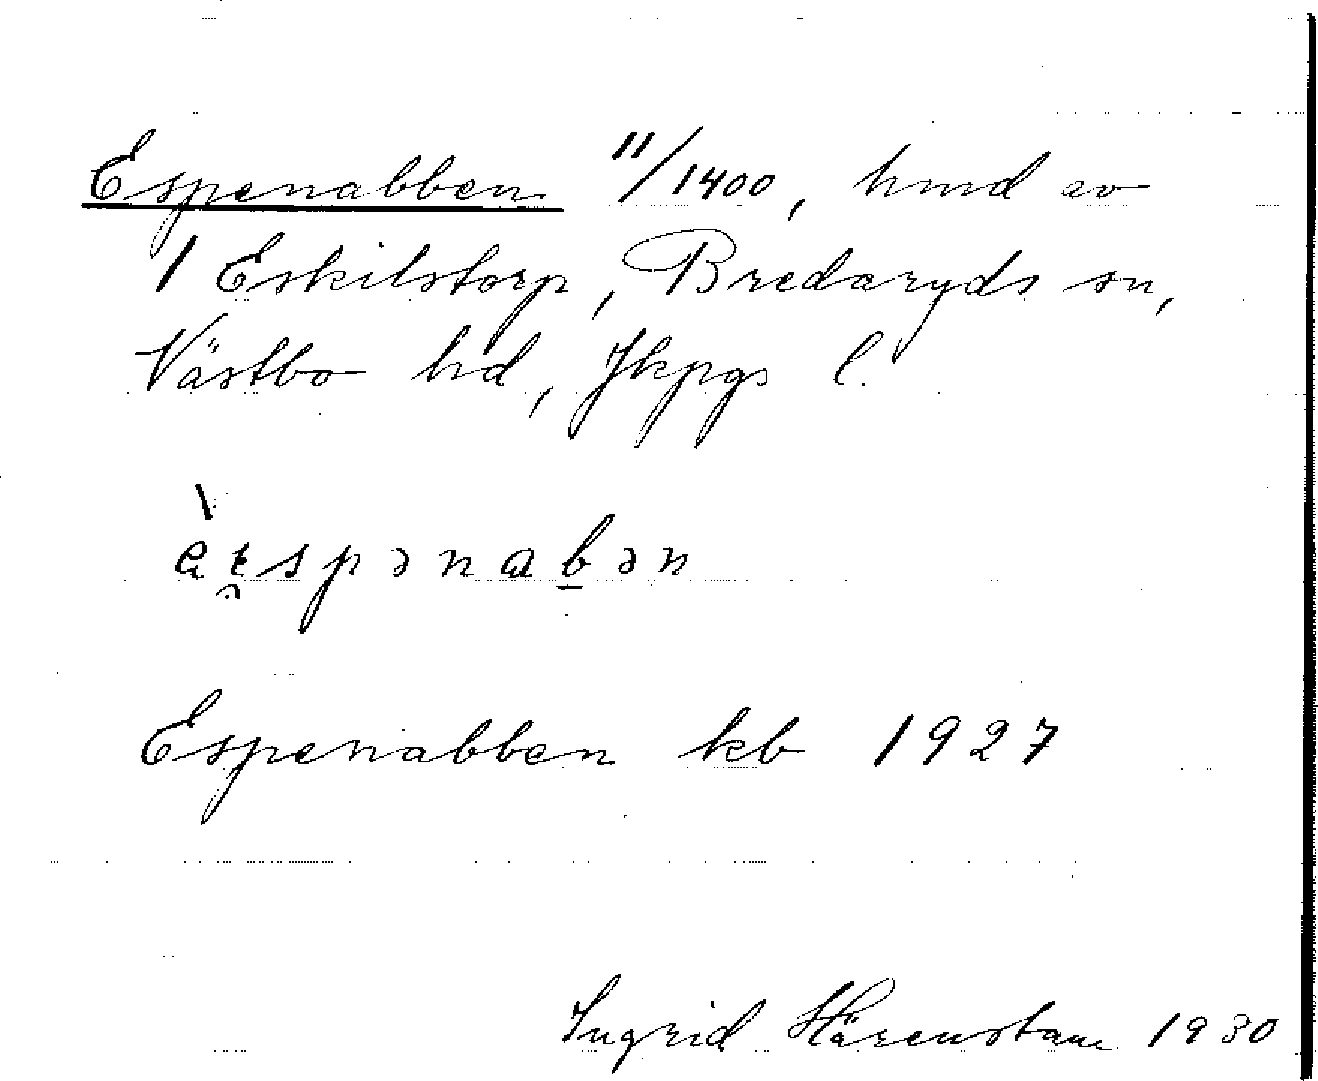 Espenabben 11/1400, hmd av
1 Eskilstorp, Bredaryds sn,
Västbo hd, Jkpgs l.
Espenabben kb 1927
Ingrid Härenstam 1930